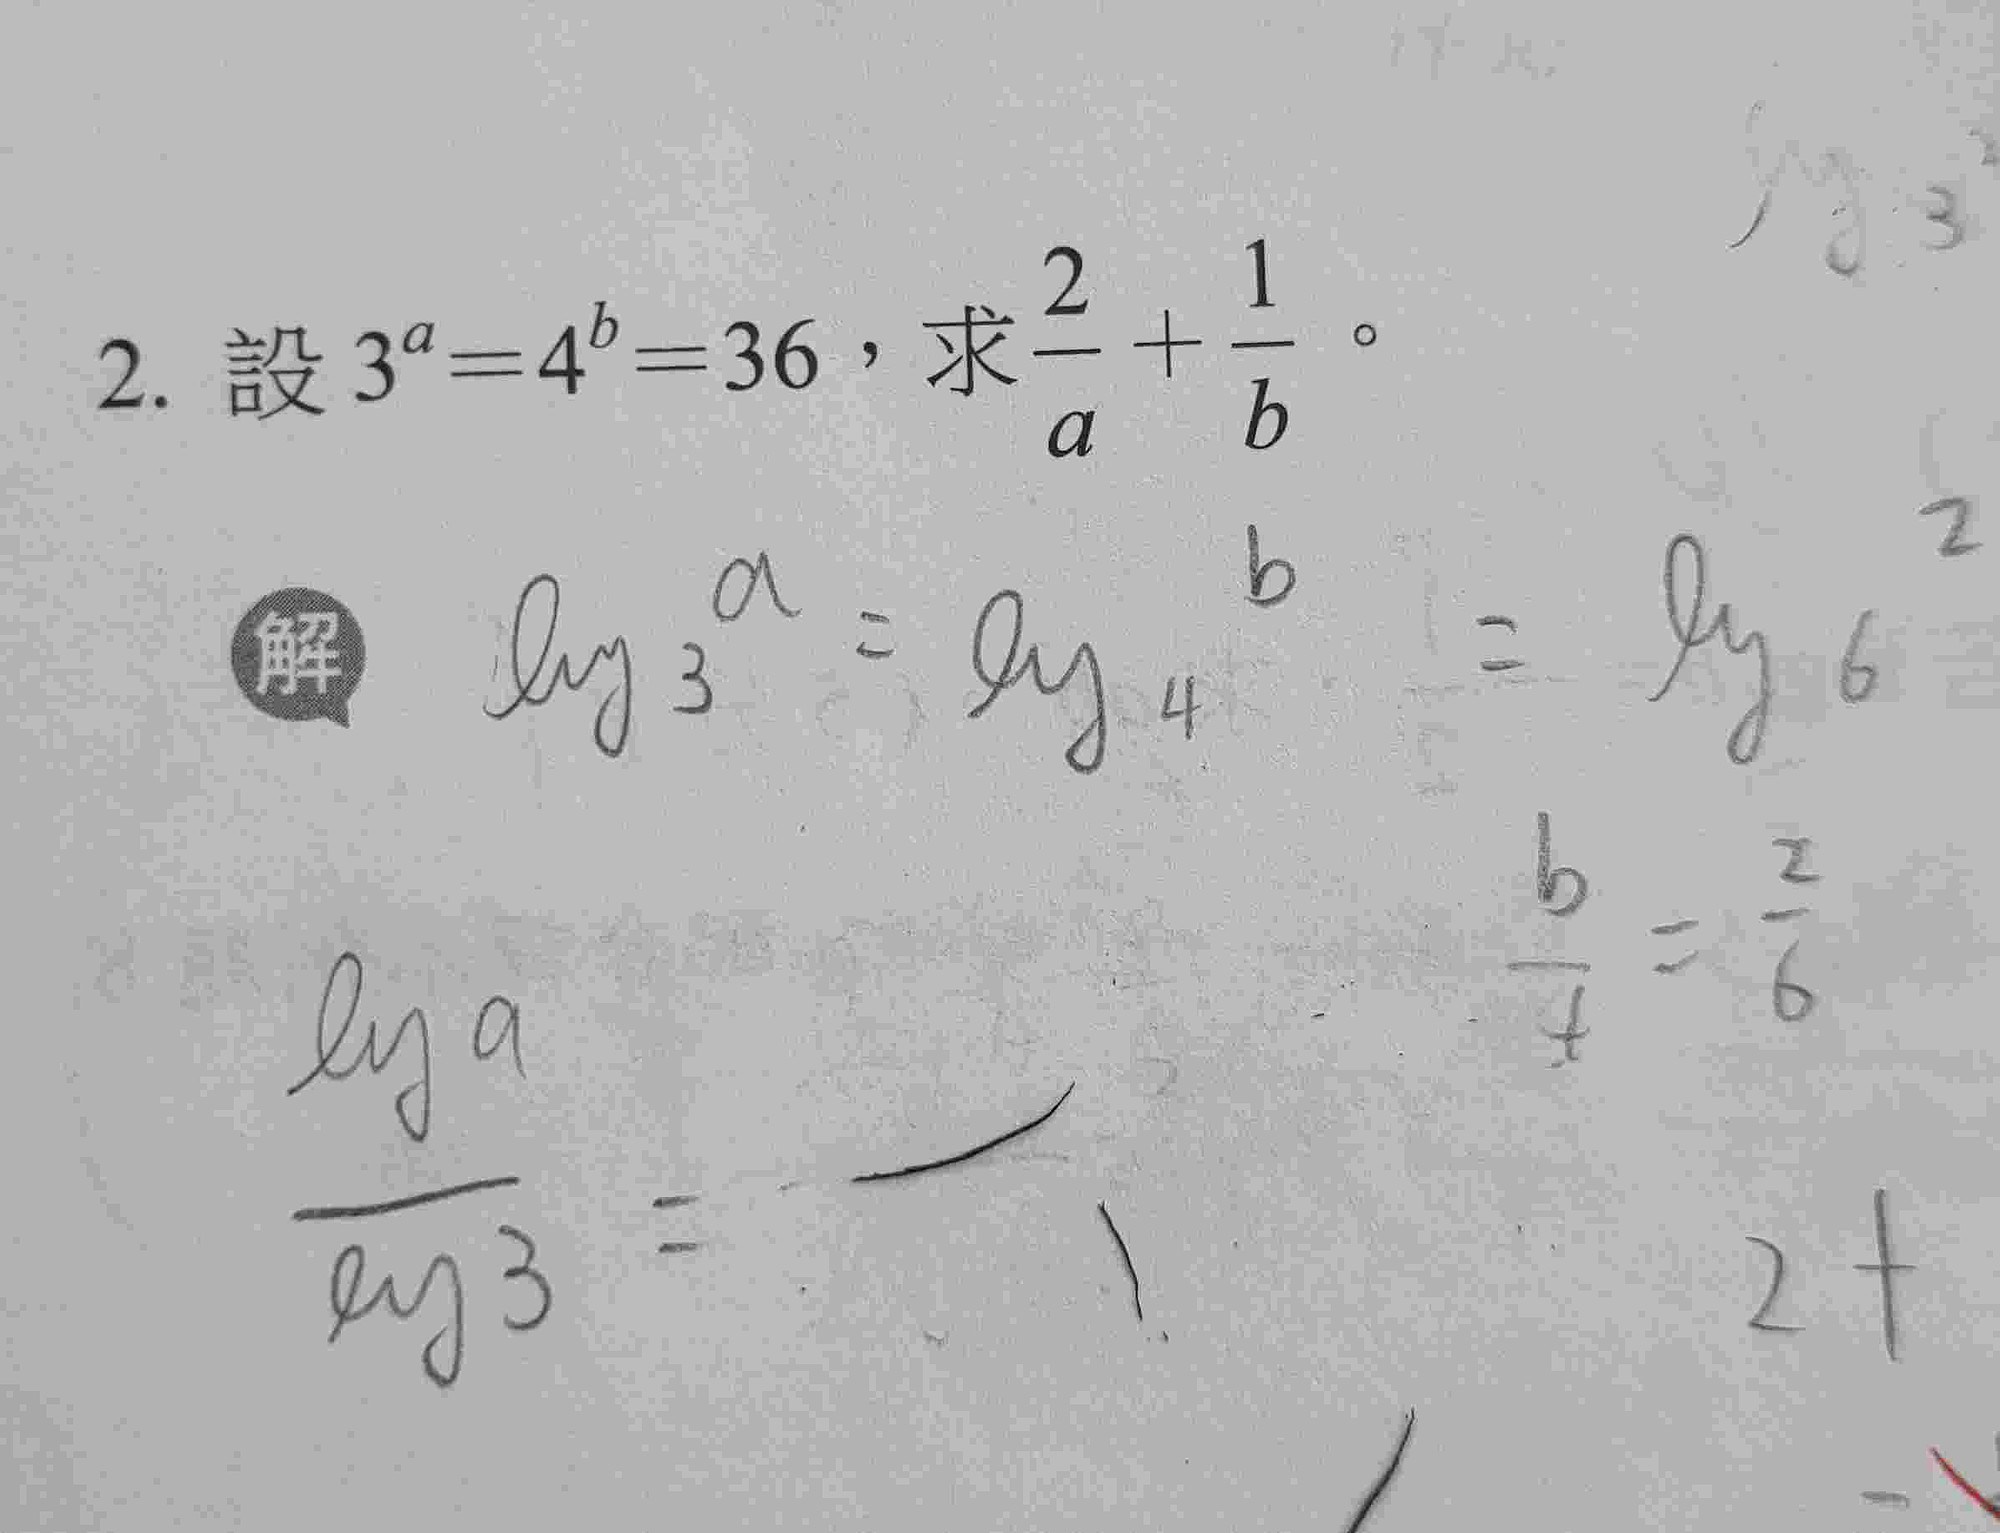 2. 設 3^a=4^b=36，求 2/a + 1/b 。
解 log 3^a = log 4^b = log 6^2
b/4 = 2/6
log a / log 3 =
2+